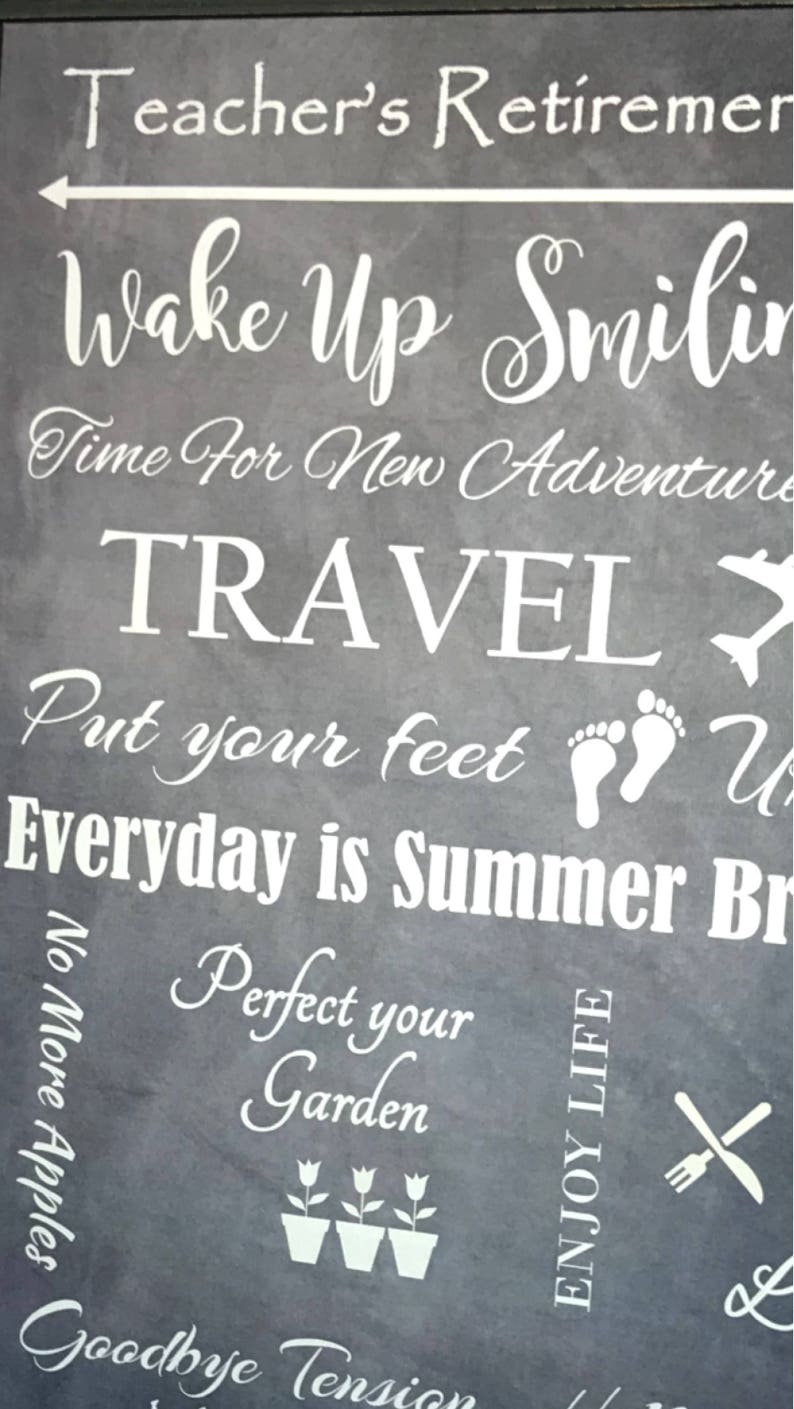 Teacher's Retiremen
Wake Up Smilin
Time For New Adventure
TRAVEL
Put your feet
Everyday is Summer Br
No More Apples
Perfect your
Garden
ENJOY LIFE
Goodbye Tension